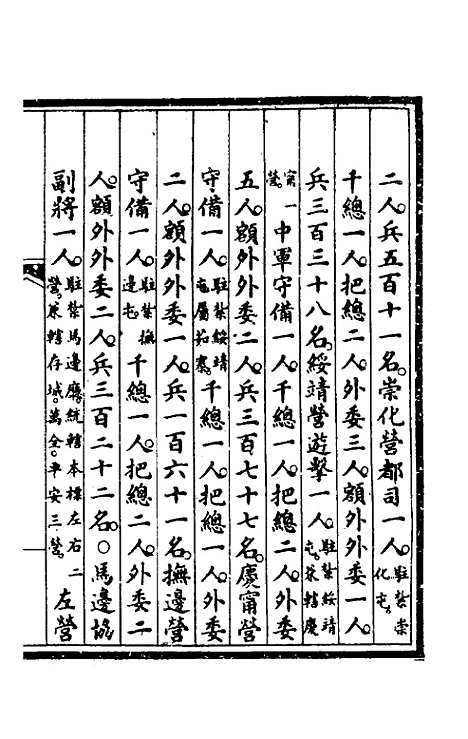 二人。兵五百十一名。崇化營都司一人。駐紮崇化屯。
千總一人。把總二人。外委三人。額外外委一人。
兵三百三十八名。綏靖營遊擊一人。駐紮綏靖屯。兼轄慶
甯一營。中軍守備一人。千總一人。把總二人。外委
五人。額外外委二人。兵三百七十七名。慶甯營
守備一人。駐紮綏靖屯屬茹寨。千總一人。把總一人。外委
二人。額外外委一人。兵一百六十一名。撫邊營
守備一人。駐紮撫邊屯。千總一人。把總二人。外委二
人。額外外委二人。兵三百二十二名。○馬邊協
副將一人。駐紮馬邊廳。統轄本標左右二營。兼轄存城。萬全。平安三營。左營